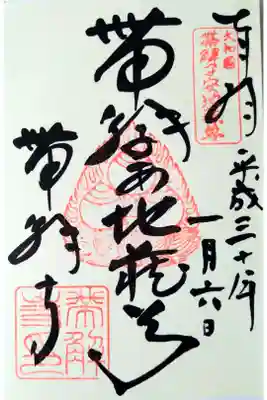 奉拝
平成三十年
一月六日
帯解子安地蔵尊
帯解寺
大和国
帯解子安地蔵